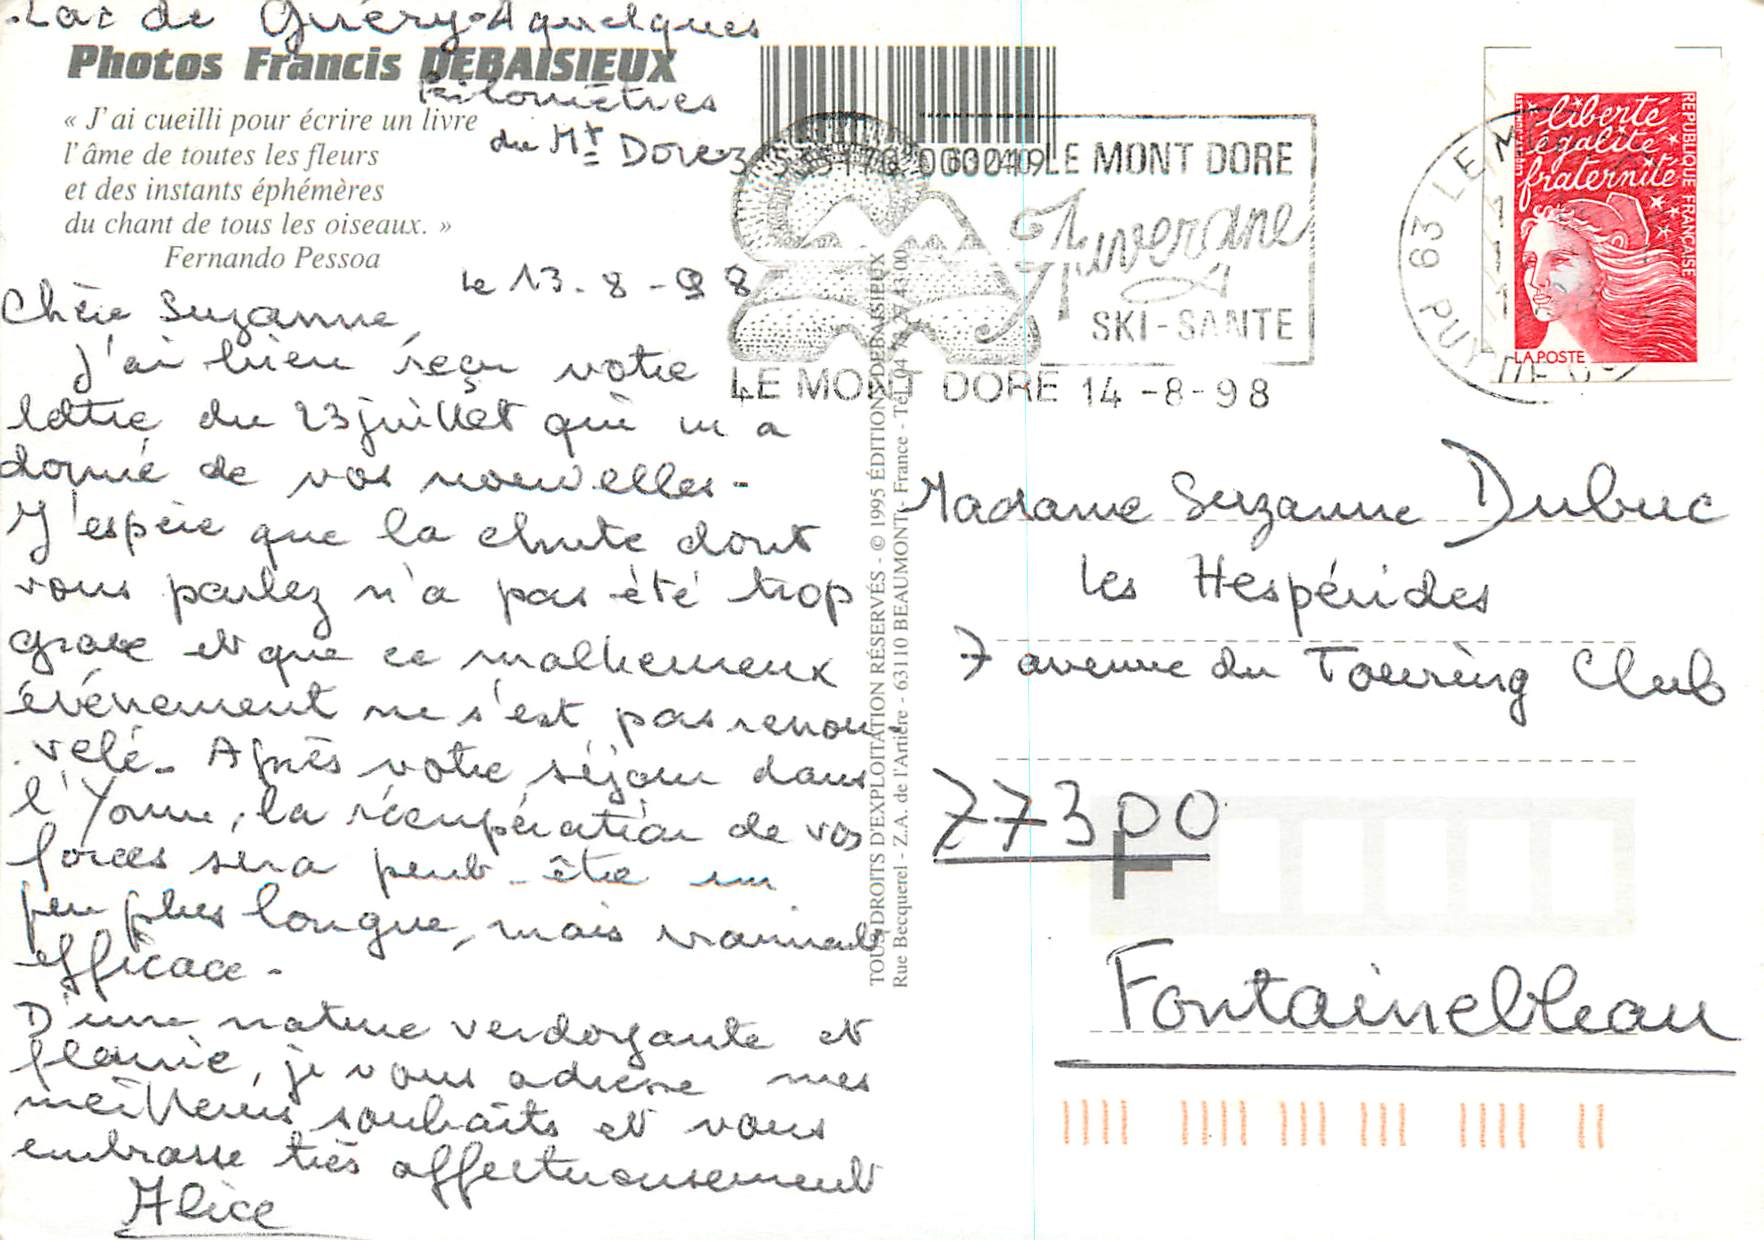 Lac de Guéry - A quelques
kilomètres
du Mt Dore
Photos Francis DEBAISIEUX
« J'ai cueilli pour écrire un livre
l'âme de toutes les fleurs
et des instants éphémères
du chant de tous les oiseaux. »
Fernando Pessoa
le 13-8-98
Chère Suzanne,
J'ai bien reçu votre
lettre du 23 juillet qui m'a
donné de vos nouvelles-
J'espère que la chute dont
vous parlez n'a pas été trop
grave et que ce malheureux
événement ne s'est pas renou-
velé- Après votre séjour dans
l'Yonne, la récupération de vos
forces sera peut-être un
peu plus longue, mais vraiment
efficace-
D'une nature verdoyante et
fleurie, je vous adresse mes
meilleurs souhaits et vous
embrasse très affectueusement
Alice
TOUS DROITS D'EXPLOITATION RÉSERVÉS - © 1995 ÉDITIONS DEBAISIEUX
Rue Becquerel - Z.A. de l'Artière - 63110 BEAUMONT - France - Tél. 04
LE MONT DORE
Auvergne
SKI-SANTE
LE MONT DORE 14-8-98
63 LE MONT
PUY DE
liberté
égalité
fraternité
REPUBLIQUE FRANÇAISE
LA POSTE
Madame Suzanne Dubuc
Les Hespérides
7 avenue du Touring Club
77300
Fontainebleau